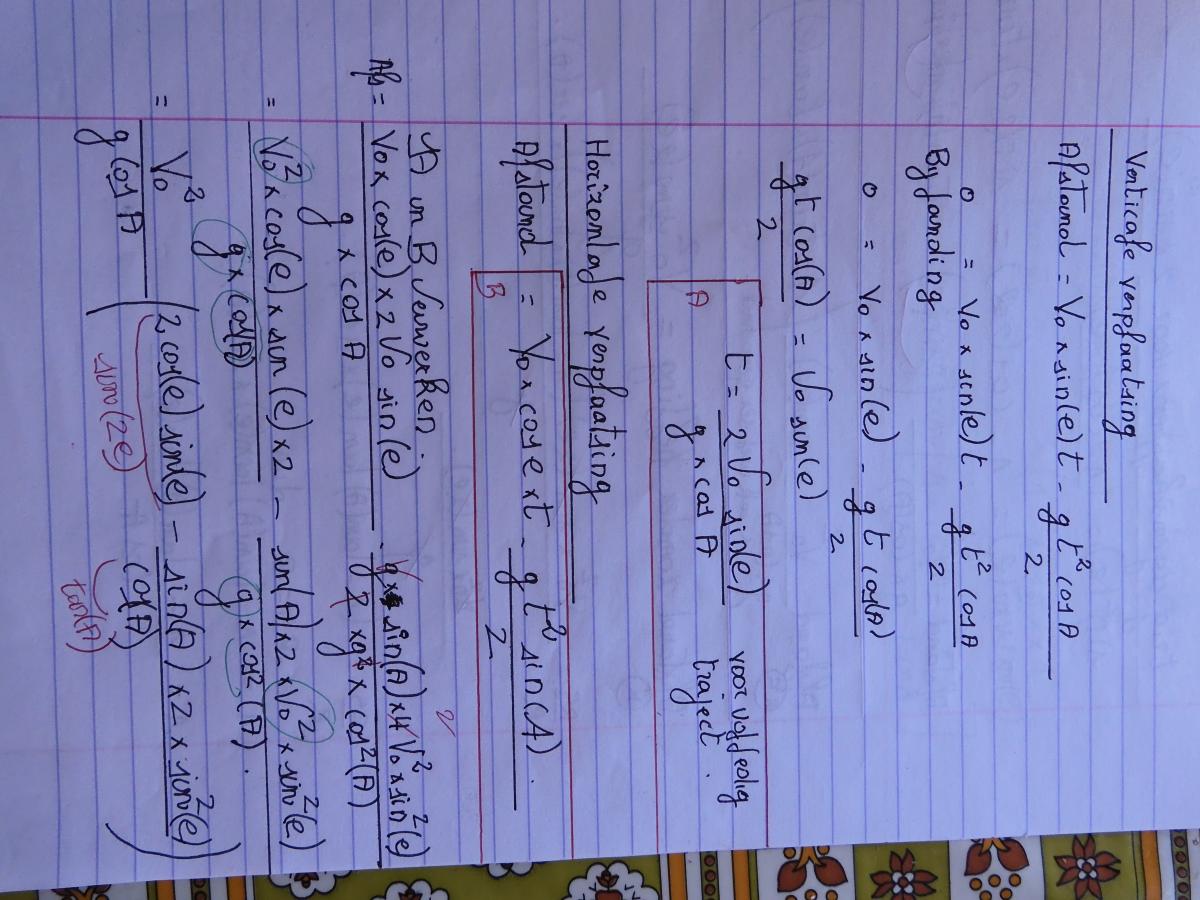 Verticale verplaatsing
Afstand = V₀ × sin(e)t - gt² cos A / 2
0 = V₀ × sin(e)t - gt² cos A / 2
By landing
0 = V₀ × sin(e) - gt cos(A) / 2
gt cos(A) / 2 = V₀ sin(e)
A t = 2 V₀ sin(e) / g × cos A voor volledig traject.
Horizontale verplaatsing
B Afstand = V₀ × cos e × t - gt² sin(A). / 2
A in B verwerken
Afs = V₀ × cos(e) × 2 V₀ sin(e) / g × cos A - g × sin(A) × 4 2 V₀² × sin²(e) / 2 × g² × cos²(A)
= V₀² × cos(e) × sin(e) × 2 / g × cos(A) - sin(A) × 2 × V₀² × sin²(e) / g × cos²(A).
= V₀² / g cos A ( 2 cos(e) sin(e) - sin(A) × 2 × sin²(e) / cos(A) )
sin(2e) tan(A)